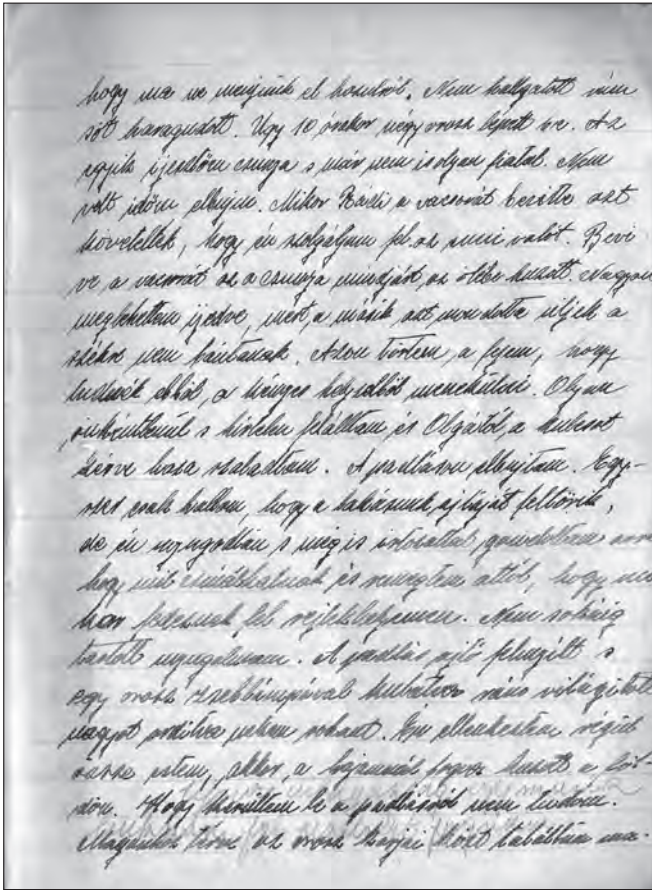 hogy ma ne menjünk el hazulról. Nem hallgatott rám
sőt haragudott. Úgy 10 órakor négy orosz lépett be. Az
egyik ijesztően csunya s már nem is olyan fiatal. Nem
volt időm elbujni. Mikor a vacsorát bevitte azt
követelték, hogy én szolgáljam fel az enni valót. Bevi
ve a vacsorát az a csunya mindjárt az ölébe huzott. Nagyon
meglehettem ijedve, mert a másik azt mondotta üljek a
székre nem bántanak. Azon törtem a fejem, hogy
tudnék ebből a kényes helyzetből menekülni. Olyan
önkéntlenül s hirtelen felálltam és Olgától a kulcsot
kérve haza szaladtam. A padláson elbujtam. Egy-
szer csak hallom, hogy a lakásunk ajtaját feltörik,
de én nyugodtan s mégis gondoltam arra
hogy mit csinálhatnak és remegtem attól, hogy
fedeznek fel rejtekhelyemen. Nem sokáig
tartott nyugalmam. A padlás ajtó felnyílt s
egy orosz zsebblámpával kutatva rám világított
nagyot ordítva nekem rohant. Én ellenkeztem végül
össze estem, akkor a hajamnál fogva huzott a
Hogy kerültem le a padlásról nem tudom.
Magamhoz térve az orosz karjai közt találtam ma-